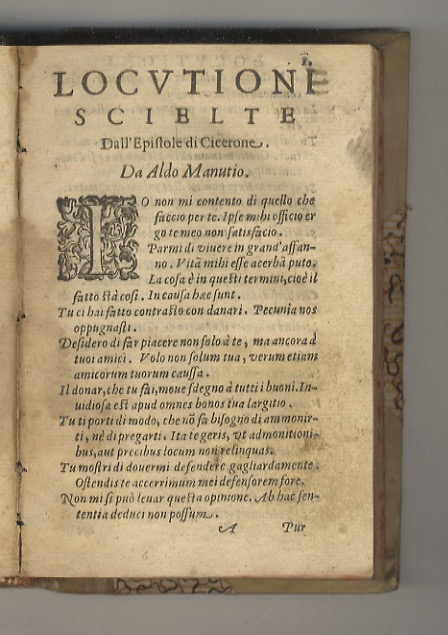 LOCVTIONI
SCIELTE
Dall'Epiſtole di Cicerone.
Da Aldo Manutio.
IO non mi contento di quello che
faccio per te. Ipſe mihi officio er
go te meo non ſatisfacio.
Parmi di viuere in grand'affan-
no. Vitã mihi eſſe acerbã puto.
La coſa è in queſti termini, cioè il
fatto ſtà coſi. In cauſa hæc ſunt.
Tu ci hai fatto contraſto con danari. Pecunia nos
oppugnaſti.
Deſidero di far piacere non ſolo à te, ma ancora à
tuoi amici. Volo non ſolum tua, verum etiam
amicorum tuorum cauſſa.
Il donar, che tu fai, moue ſdegno à tutti i buoni. In-
uidioſa eſt apud omnes bonos tua largitio.
Tu ti porti di modo, che nõ fa biſogno di ammonir-
ti, nè di pregarti. Ita te geris, vt admonitioni-
bus, aut precibus locum non relinquas.
Tu moſtri di douermi defendere gagliardamente.
Oſtendis te accerrimum mei defenſorem fore.
Non mi ſi può leuar queſta opinione. Ab hac ſen-
tentia deduci non poſſum.
A Pur